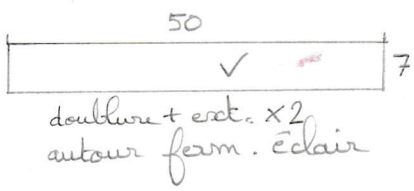 50
✓
7
doublure + ext. x2
autour ferm. éclair